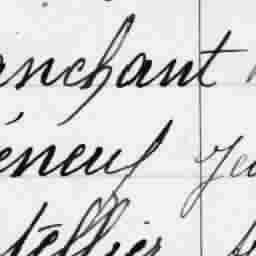 anchant
éneuf Jea
tellier